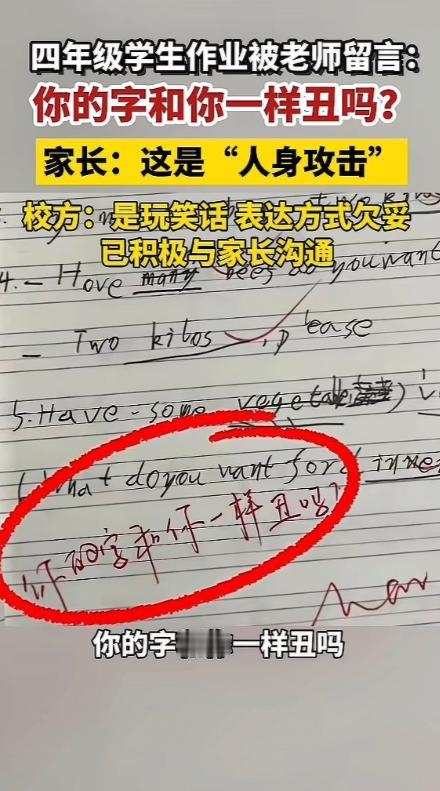 四年级学生作业被老师留言：
你的字和你一样丑吗？
家长：这是“人身攻击”
校方：是玩笑话 表达方式欠妥
已积极与家长沟通
4. - Hove many bees do you want
- Two kibos, please
5. Have some vegetable
What do you want for dinner
你的字和你一样丑吗？
你的字 一样丑吗